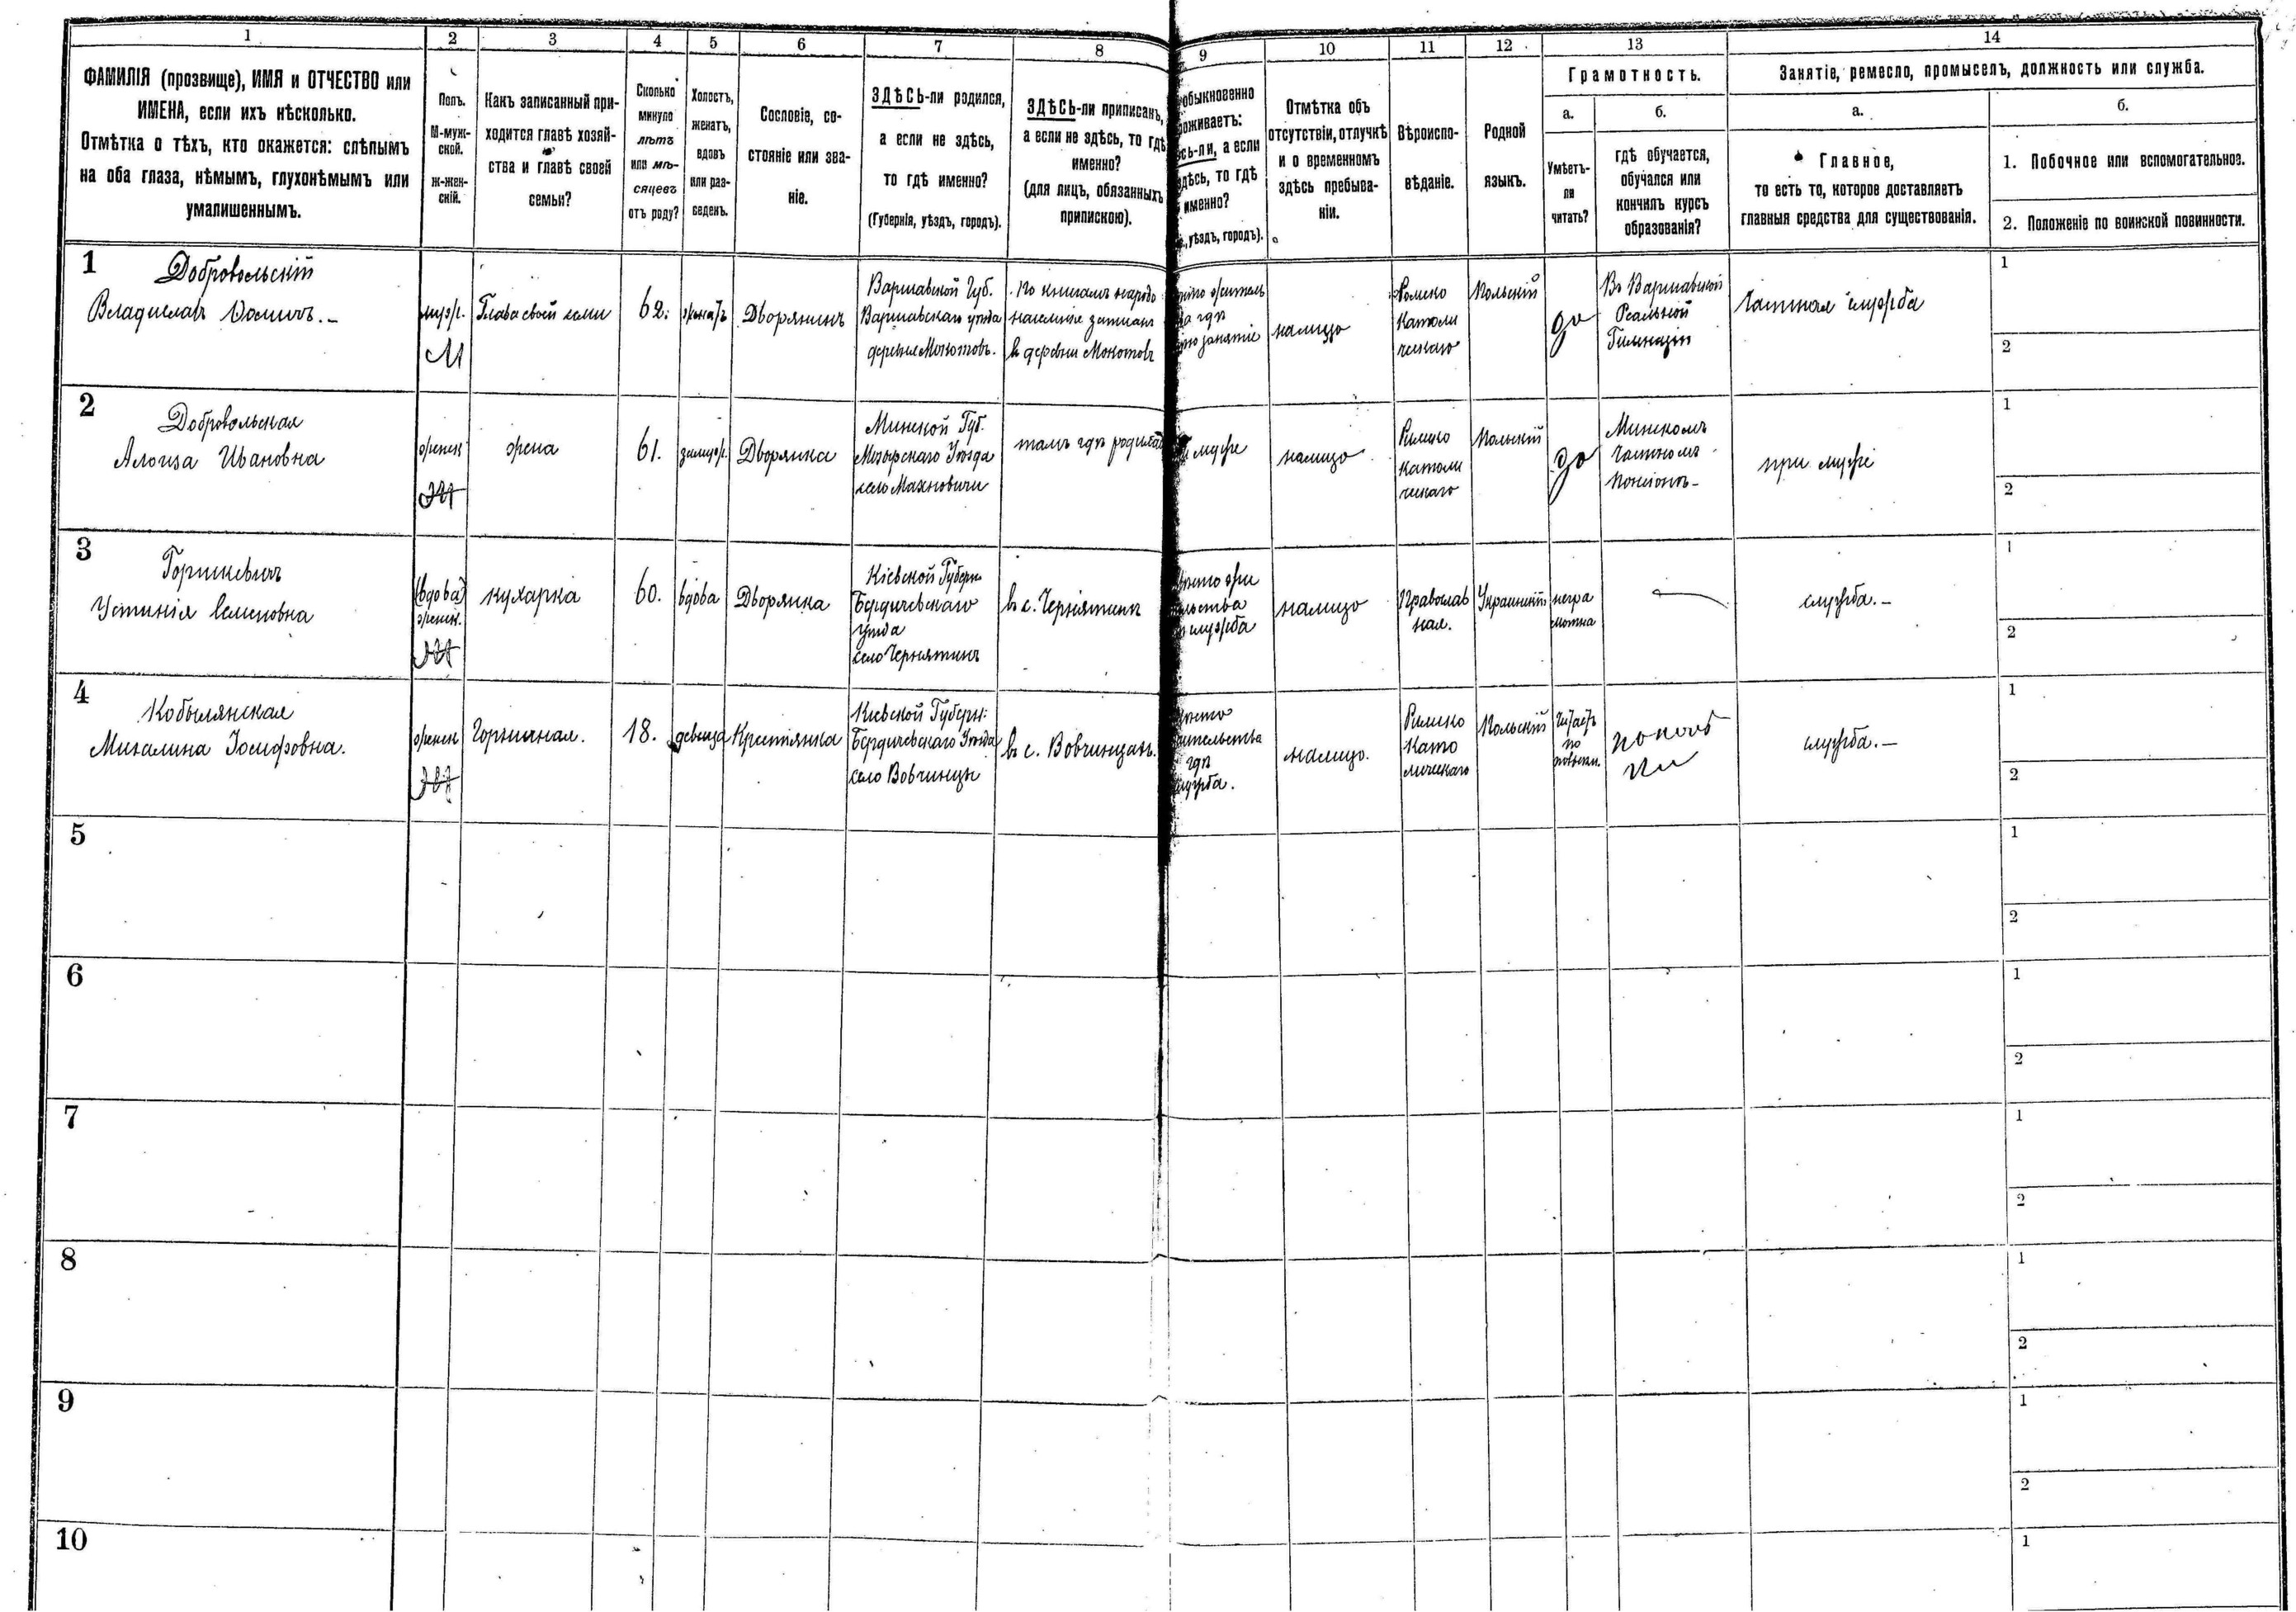 1 2 3 4 5 6 7 8 9 10 11 12 13 14
ФАМИЛІЯ (прозвище), ИМЯ и ОТЧЕСТВО или
ИМЕНА, если ихъ нѣсколько.
Отмѣтка о тѣхъ, кто окажется: слѣпымъ
на оба глаза, нѣмымъ, глухонѣмымъ или
умалишеннымъ.
Полъ.
М-муж-
ской.
Ж-жен-
скій.
Какъ записанный при-
ходится главѣ хозяй-
ства и главѣ своей
семьи?
Сколько
минуло
лѣтъ
или мѣ-
сяцевъ
отъ роду?
Холостъ,
женатъ,
вдовъ
или раз-
веденъ.
Сословіе, со-
стояніе или зва-
ніе.
ЗДѢСЬ-ли родился,
а если не здѣсь,
то гдѣ именно?
(Губернія, уѣздъ, городъ).
ЗДѢСЬ-ли приписанъ,
а если не здѣсь, то гдѣ
именно?
(для лицъ, обязанныхъ
припискою).
обыкновенно
оживаетъ:
сь-ли, а если
дѣсь, то гдѣ
именно?
, уѣздъ, городъ).
Отмѣтка объ
отсутствіи, отлучкѣ
и о временномъ
здѣсь пребыва-
ніи.
Вѣроиспо-
вѣданіе.
Родной
языкъ.
Грамотность.
а.
Умѣетъ-
ли
читать?
б.
гдѣ обучается,
обучался или
кончилъ курсъ
образованія?
Занятіе, ремесло, промыселъ, должность или служба.
а.
Главное,
то есть то, которое доставляетъ
главныя средства для существованія.
б.
1. Побочное или вспомогательное.
2. Положеніе по воинской повинности.
1
Добровольскій
Владиславъ
муж.
М
Глава своей семи
62.
женатъ
Дворянинъ
Варшавской Губ.
Варшавскаго уѣзда
деревня Мокотовъ.
По книгамъ народо
населенія записанъ
въ деревни Мокотовъ
гдѣ
занятіе
налицо
Римско
Католи
ческаго
Польскій
да
Въ Варшавской
Реальной
Гимназіи
Частная служба
1
2
2
Добровольская
Алоиза Ивановна
женск
Ж
жена
61.
замуж.
Дворянка
Минской Губ.
Мозырскаго Уѣзда
село Махновичи
тамъ гдѣ родилась
муже
налицо
Римско
Католи
ческаго
Польскій
да
Минскомъ
Частномъ
Пансіонѣ
при мужѣ
1
2
3
Устинія Семеновна
(вдова)
женск.
Ж
кухарка
60.
вдова
Дворянка
Кіевской Губерн
Бердичевскаго
уѣзда
село Чернятинъ
въ с. Чернятинѣ
служба
налицо
Православ
ная.
Украинскій
негра
мотна
служба.-
1
2
4
Кобылянская
Михалина Іосифовна.
женск
Ж
Горничная.
18.
девица
Крестіянка
Кіевской Губерн:
Бердичевскаго Уѣзда
село Вовчинцы
въ с. Вовчинцахъ.
гдѣ
служба.
налицо.
Римско
Като
лическаго
Польскій
Читаетъ
по
польски.
служба.-
1
2
5
1
2
6
1
2
7
1
2
8
1
2
9
1
2
10
1